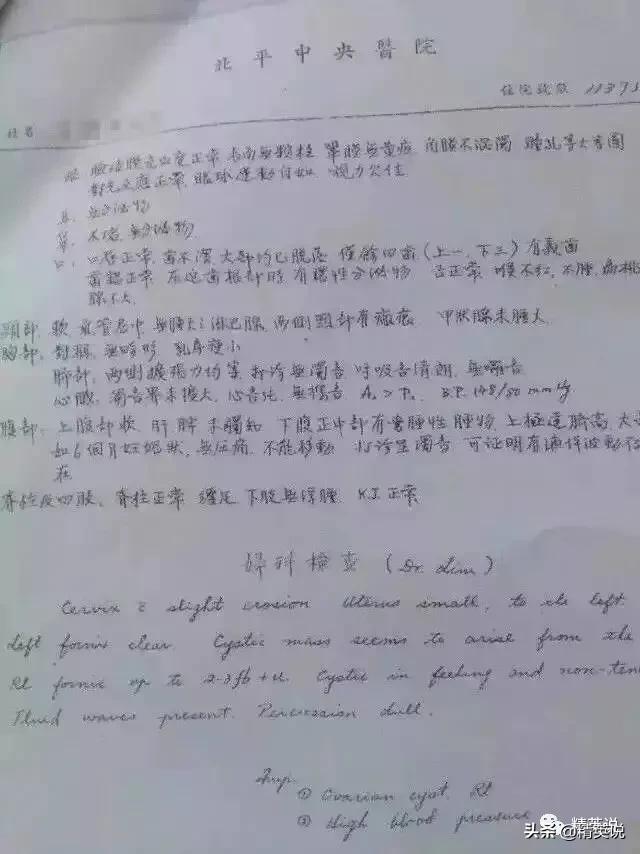 北平中央醫院
住院號數 11371
姓名
眼 瞼結膜充血度正常 表面無顆粒 鞏膜無黃疸 角膜不混濁 瞳孔等大齐圓
對光反應正常 眼球運動自如 視力欠佳
耳、無分泌物
鼻、不塞、無分泌物
口、口唇正常、齒不潔 大部均已脫落 僅餘四齒(上一、下三)有義齒
齒齦正常 左邊齒根部時有穩性分泌物 舌正常 喉不紅,不腫,扁桃
腺不大
頸部、軟 氣管居中 無腫大之淋巴腺 两側頸部有瘢痕 甲狀腺未腫大
胸部、對稱、無畸形 乳房瘦小
肺部、两側擴張力均等 打診無濁音 呼吸音清朗、無囉音
心臟、濁音界未擴大、心音純、無雜音 A₂ > P₂. B.P. 148/80 mmHg
腹部、上腹部軟 肝脾未觸知 下腹正中部有囊腫性腫物 上極達臍高 大
如6個月妊娠狀、無压痛 不能移動 打診呈濁音 可証明有液体波動存
在
脊柱及四肢、脊柱正常 纏足 下肢無浮腫 K.J. 正常
婦科檢查 (Dr. Lim)
Cervix c̄ slight erosion Uterus small, to the left.
Left fornix clear. Cystic mass seems to arise from the
Rt fornix up to 2-3 fb + u. Cystic in feeling and non-ten
Fluid waves present. Percussion dull.
Imp.
① Ovarian cyst. Rt
② High blood pressure
精英说
头条 @精英说